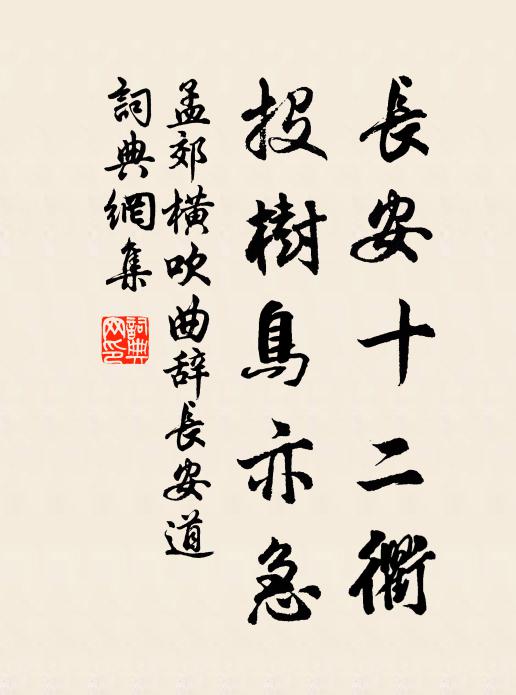 長安十二衢
投樹鳥亦急
孟郊橫吹曲辞長安道
詞典網集
詞典网印